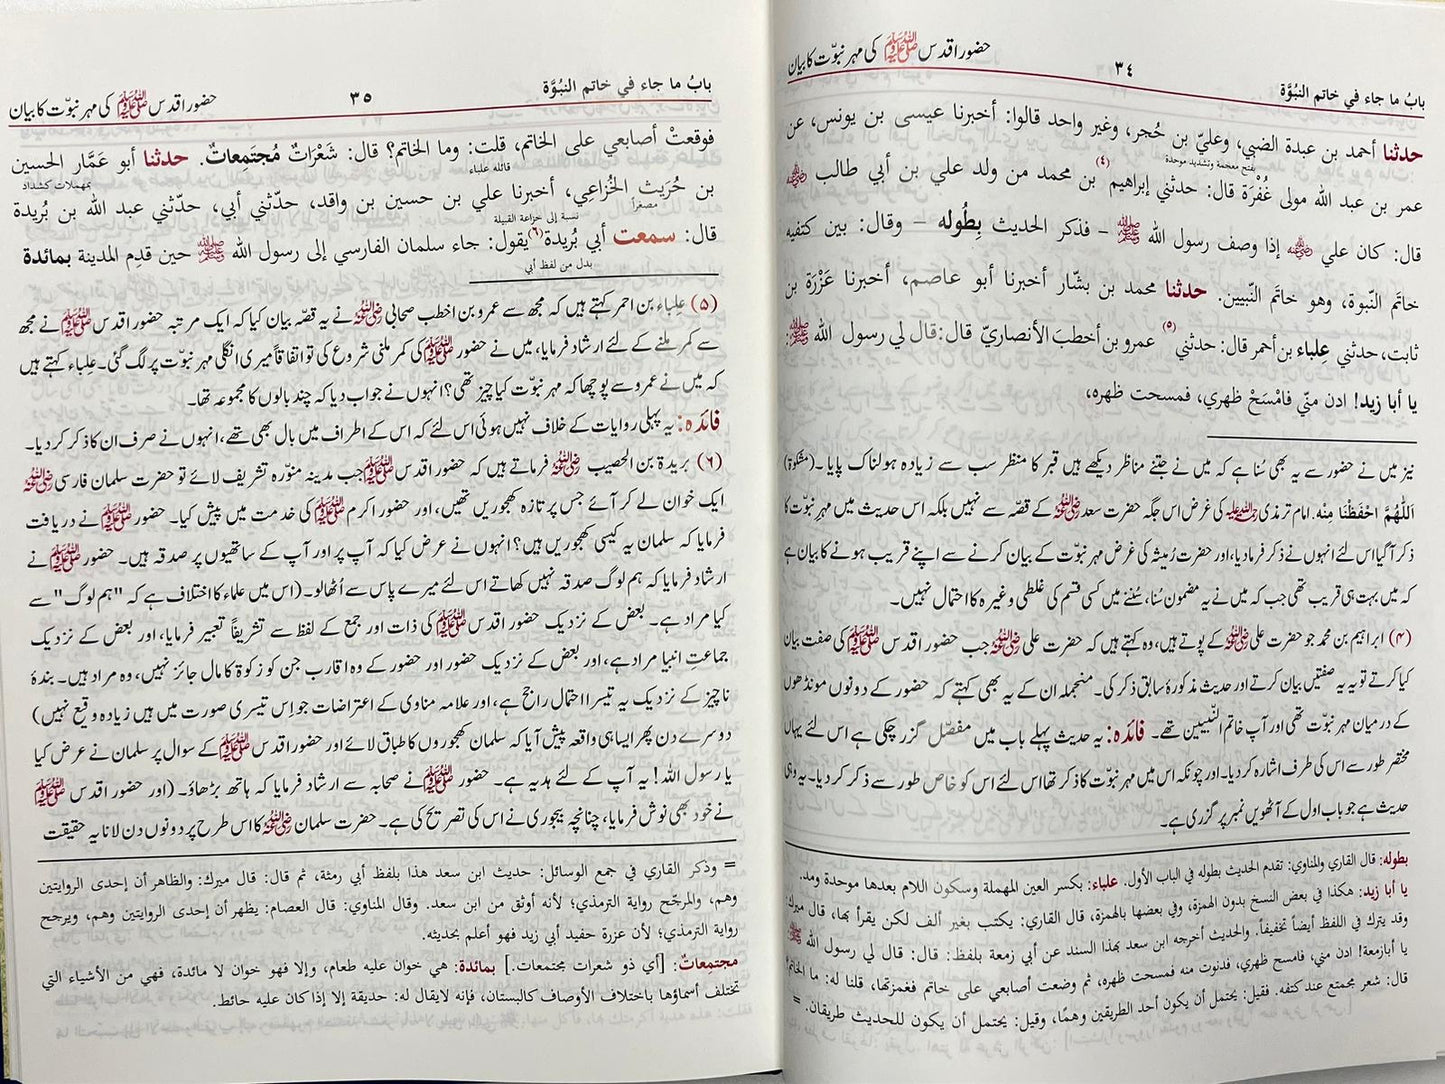 بابُ ما جاء في خاتم النبُوَّة
٣٤
حضور اقدس ﷺ کی مہر نبوّت کا بیان
حدثنا أحمد بن عبدة الضبي، وعليّ بن حُجر، وغير واحد قالوا: أخبرنا عيسى بن يونس، عن
بفتح معجمة وتشديد موحدة
عمر بن عبد الله مولى غُفْرَة قال: حدثني إبراهيم (٤) بن محمد من ولد علي بن أبي طالب رضي الله عنه
قال: كان علي رضي الله عنه إذا وصف رسول الله ﷺ – فذكر الحديث بِطُوله – وقال: بين كتفيه
خاتَم النّبوة، وهو خاتَم النّبيين. حدثنا محمد بن بشّار أخبرنا أبو عاصم، أخبرنا عَزْرَة بن
ثابت، حدثني علباء بن أحمر قال: حدثني (٥) عمرو بن أخطبَ الأنصاريّ قال: قال لي رسول الله ﷺ:
يا أبا زيد! ادن منّي فامْسَحْ ظهري، فمسحت ظهره،
نیز میں نے حضور سے یہ بھی سُنا ہے کہ میں نے جتنے مناظر دیکھے ہیں قبر کا منظر سب سے زیادہ ہولناک پایا۔ (مشکوٰۃ)
اَللّٰهُمَّ احْفَظْنَا مِنْه. امام ترمذی رحمۃ اللہ علیہ کی غرض اس جگہ حضرت سعد رضی اللہ عنہ کے قصّہ سے نہیں بلکہ اس حدیث میں مہرِ نبوّت کا
ذکر آگیا اس لئے انہوں نے ذکر فرمادیا، اور حضرت رُمیثہ کی غرض مہر نبوّت کے بیان کرنے سے اپنے قریب ہونے کا بیان ہے
کہ میں بہت ہی قریب تھی جب کہ میں نے یہ مضمون سُنا، سُننے میں کسی قسم کی غلطی وغیرہ کا احتمال نہیں۔
(۴) ابراہیم بن محمد جو حضرت علی رضی اللہ عنہ کے پوتے ہیں، وہ کہتے ہیں کہ حضرت علی رضی اللہ عنہ جب حضور اقدس ﷺ کی صفت بیان
کیا کرتے تو یہ یہ صفتیں بیان کرتے اور حدیث مذکورۂ سابق ذکر کی۔ منجملہ ان کے یہ بھی کہتے کہ حضور کے دونوں مونڈھوں
کے درمیان مہر نبوّت تھی اور آپ خاتم النّبیین تھے۔ فائدہ: یہ حدیث پہلے باب میں مفصّل گزر چکی ہے اس لئے یہاں
مختصر طور سے اس کی طرف اشارہ کر دیا۔ اور چونکہ اس میں مہر نبوّت کا ذکر تھا اس لئے اس کو خاص طور سے ذکر کر دیا۔ یہ وہی
حدیث ہے جو باب اول کے آٹھویں نمبر پر گزری ہے۔
بطوله: قال القاري والمناوي: تقدم الحديث بطوله في الباب الأول. علباء: بكسر العين المهملة وسكون اللام بعدها موحدة ومد.
يا أبا زيد: هكذا في بعض النسخ بدون الهمزة، وفي بعضها بالهمزة، قال القاري: يكتب بغير ألف لكن يقرأ بها، قال ميرك:
وقد يترك في اللفظ أيضاً تخفيفاً. والحديث أخرجه ابن سعد بهذا السند عن أبي زمعة بلفظ: قال: قال لي رسول الله ﷺ
يا أبازمعة! ادن مني، فامسح ظهري، فدنوت منه فمسحت ظهره، ثم وضعت أصابعي على خاتم فغمزتها، قلنا له: ما الخاتم؟
قال: شعر يجتمع عند كتفه. فقيل: يحتمل أن يكون أحد الطريقين وهمًا، وقيل: يحتمل أن يكون للحديث طريقان. =
بابُ ما جاء في خاتم النبُوَّة
٣٥
حضور اقدس ﷺ کی مہر نبوّت کا بیان
فوقعتْ أصابعي على الخاتم، قلت: وما الخاتم؟ قال: شَعْرَاتٌ مُجتَمعاتٌ. حدثنا أبو عَمَّار الحسين
قائله علباء
بمهملات كشداد
بن حُرَيث الخُزاعِي، أخبرنا علي بن حسين بن واقد، حدّثني أبي، حدّثني عبد الله بن بُريدة
مصغراً
نسبة إلى خزاعة القبيلة
قال: سمعت أبي بُريدة (٦) يقول: جاء سلمان الفارسي إلى رسول الله ﷺ حين قدِم المدينة بمائدة
بدل من لفظ أبي
(۵) عِلباء بن احمر کہتے ہیں کہ مجھ سے عمرو بن اخطب صحابی رضی اللہ عنہ نے یہ قصّہ بیان کیا کہ ایک مرتبہ حضور اقدس ﷺ نے مجھ
سے کمر ملنے کے لئے ارشاد فرمایا، میں نے حضور ﷺ کی کمر ملنی شروع کی تو اتفاقاً میری انگلی مہر نبوّت پر لگ گئی۔ علباء کہتے ہیں
کہ میں نے عمرو سے پوچھا کہ مہر نبوّت کیا چیز تھی؟ انہوں نے جواب دیا کہ چند بالوں کا مجموعہ تھا۔
فائدہ: یہ پہلی روایات کے خلاف نہیں ہوئی اس لئے کہ اس کے اطراف میں بال بھی تھے، انہوں نے صرف ان کا ذکر کر دیا۔
(۶) بریدۃ بن الحصیب رضی اللہ عنہ فرماتے ہیں کہ حضور اقدس ﷺ جب مدینہ منوّرہ تشریف لائے تو حضرت سلمان فارسی رضی اللہ عنہ
ایک خوان لے کر آئے جس پر تازہ کھجوریں تھیں، اور حضور اکرم ﷺ کی خدمت میں پیش کیا۔ حضور ﷺ نے دریافت
فرمایا کہ سلمان یہ کیسی کھجوریں ہیں؟ انہوں نے عرض کیا کہ آپ پر اور آپ کے ساتھیوں پر صدقہ ہیں۔ حضور ﷺ نے
ارشاد فرمایا کہ ہم لوگ صدقہ نہیں کھاتے اس لئے میرے پاس سے اُٹھالو۔ (اس میں علماء کا اختلاف ہے کہ "ہم لوگ" سے
کیا مراد ہے۔ بعض کے نزدیک حضور اقدس ﷺ کی ذات اور جمع کے لفظ سے تشریفاً تعبیر فرمایا، اور بعض کے نزدیک
جماعتِ انبیا مراد ہے، اور بعض کے نزدیک حضور اور حضور کے وہ اقارب جن کو زکوۃ کا مال جائز نہیں، وہ مراد ہیں۔ بندۂ
ناچیز کے نزدیک یہ تیسرا احتمال راجح ہے، اور علامہ مناوی کے اعتراضات جو اِس تیسری صورت میں ہیں زیادہ وقیع نہیں)
دوسرے دن پھر ایسا ہی واقعہ پیش آیا کہ سلمان کھجوروں کا طباق لائے اور حضور اقدس ﷺ کے سوال پر سلمان نے عرض کیا
یا رسول اللہ! یہ آپ کے لئے ہدیہ ہے۔ حضور ﷺ نے صحابہ سے ارشاد فرمایا کہ ہاتھ بڑھاؤ۔ (اور حضور اقدس ﷺ
نے خود بھی نوش فرمایا، چنانچہ بیجوری نے اس کی تصریح کی ہے۔ حضرت سلمان رضی اللہ عنہ کا اس طرح پر دونوں دن لانا یہ حقیقت
= وذكر القاري في جمع الوسائل: حديث ابن سعد هذا بلفظ أبي رمثة، ثم قال: قال ميرك: والظاهر أن إحدى الروايتين
وهم، والمرجّح رواية الترمذي؛ لأنه أوثق من ابن سعد. وقال المناوي: قال العصام: يظهر أن إحدى الروايتين وهم، ويرجح
رواية الترمذي؛ لأن عزرة حفيد أبي زيد فهو أعلم بحديثه.
مجتمعاتٌ: [أي ذو شعرات مجتمعات.] بمائدة: هي خوان عليه طعام، وإلا فهو خوان لا مائدة، فهي من الأشياء التي
تختلف أسماؤها باختلاف الأوصاف كالبستان، فإنه لايقال له: حديقة إلا إذا كان عليه حائط.